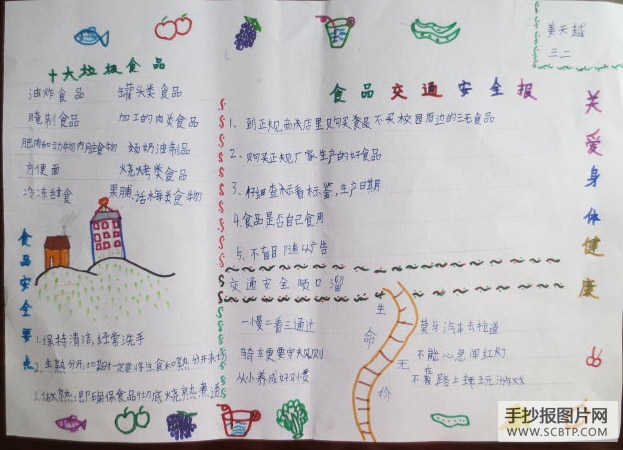 姜天越
三二
十大垃圾食品
油炸食品 罐头类食品
腌制食品 加工的肉类食品
肥肉和动物内脏食物 奶油制品
方便面 烧烤类食品
冷冻甜食 果脯、话梅类食物
食品交通安全报
1、到正规商店里购买食品不买校园周边的三无食品
2、购买正规厂家生产的好食品
3、仔细查标看标鉴,生产日期
4.食品是否自己食用
5.不盲目随从广告
关爱身体健康
食品安全要点
1.保持清洁,经常洗手
2.生熟分开,切菜时一定要将生食和熟分开来
3.做熟:即确保食品彻底烧熟煮透
交通安全顺口溜
一慢二看三通过
骑车更要守规则
从小养成好习惯
生命无价
莫与汽车去抢道
不能心急闯红灯
不在路上玩游戏
手抄报图片网
WWW.SCBTP.COM